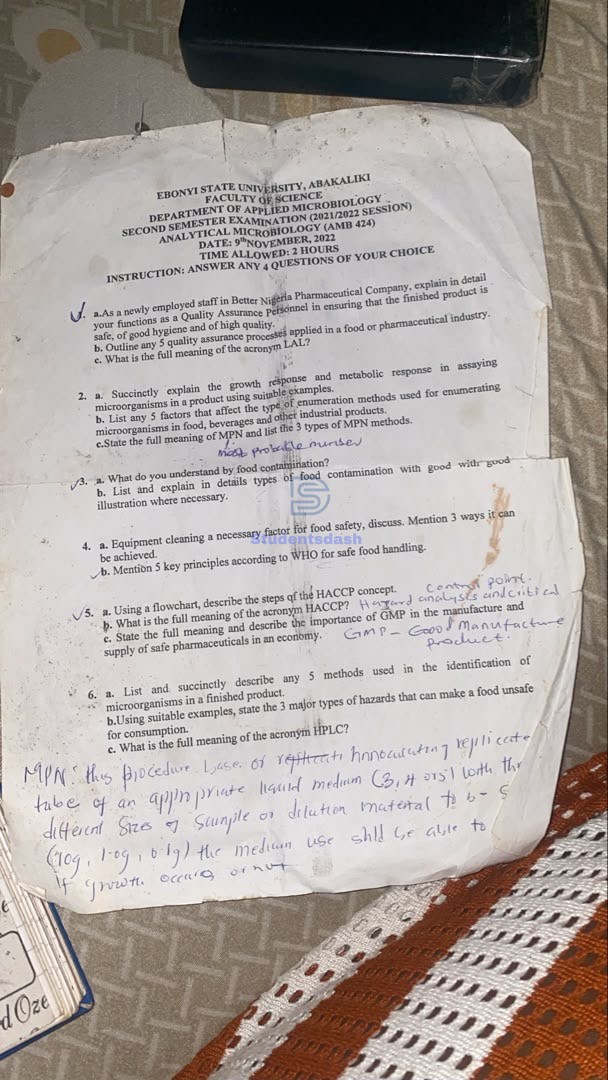 EBONYI STATE UNIVERSITY, ABAKALIKI
FACULTY OF SCIENCE
DEPARTMENT OF APPLIED MICROBIOLOGY
SECOND SEMESTER EXAMINATION (2021/2022 SESSION)
ANALYTICAL MICROBIOLOGY (AMB 424)
DATE: 9th NOVEMBER, 2022
TIME ALLOWED: 2 HOURS
INSTRUCTION: ANSWER ANY 4 QUESTIONS OF YOUR CHOICE
a.As a newly employed staff in Better Nigeria Pharmaceutical Company, explain in detail
your functions as a Quality Assurance Personnel in ensuring that the finished product is
safe, of good hygiene and of high quality.
b. Outline any 5 quality assurance processes applied in a food or pharmaceutical industry.
c. What is the full meaning of the acronym LAL?
2. a. Succinctly explain the growth response and metabolic response in assaying
microorganisms in a product using suitable examples.
b. List any 5 factors that affect the type of enumeration methods used for enumerating
microorganisms in food, beverages and other industrial products.
c.State the full meaning of MPN and list the 3 types of MPN methods.
most probable number
3. a. What do you understand by food contamination?
b. List and explain in details types of food contamination with good with good
illustration where necessary.
Studentsdash
4. a. Equipment cleaning a necessary factor for food safety, discuss. Mention 3 ways it can
be achieved.
b. Mention 5 key principles according to WHO for safe food handling.
5. a. Using a flowchart, describe the steps of the HACCP concept. Control point.
b. What is the full meaning of the acronym HACCP? Hazard analysis and critical
c. State the full meaning and describe the importance of GMP in the manufacture and
supply of safe pharmaceuticals in an economy. GMP - Good Manufacture
product.
6. a. List and succinctly describe any 5 methods used in the identification of
microorganisms in a finished product.
b.Using suitable examples, state the 3 major types of hazards that can make a food unsafe
for consumption.
c. What is the full meaning of the acronym HPLC?
MPN: this procedure base of replicate
tube of an appropriate liquid medium (3, 4 or 5) with thr
different sizes of sample or dilution material to b-
(10g, 1.0g, 0.1g) the medium use shld be able to
if growth occurs or not
d Oze